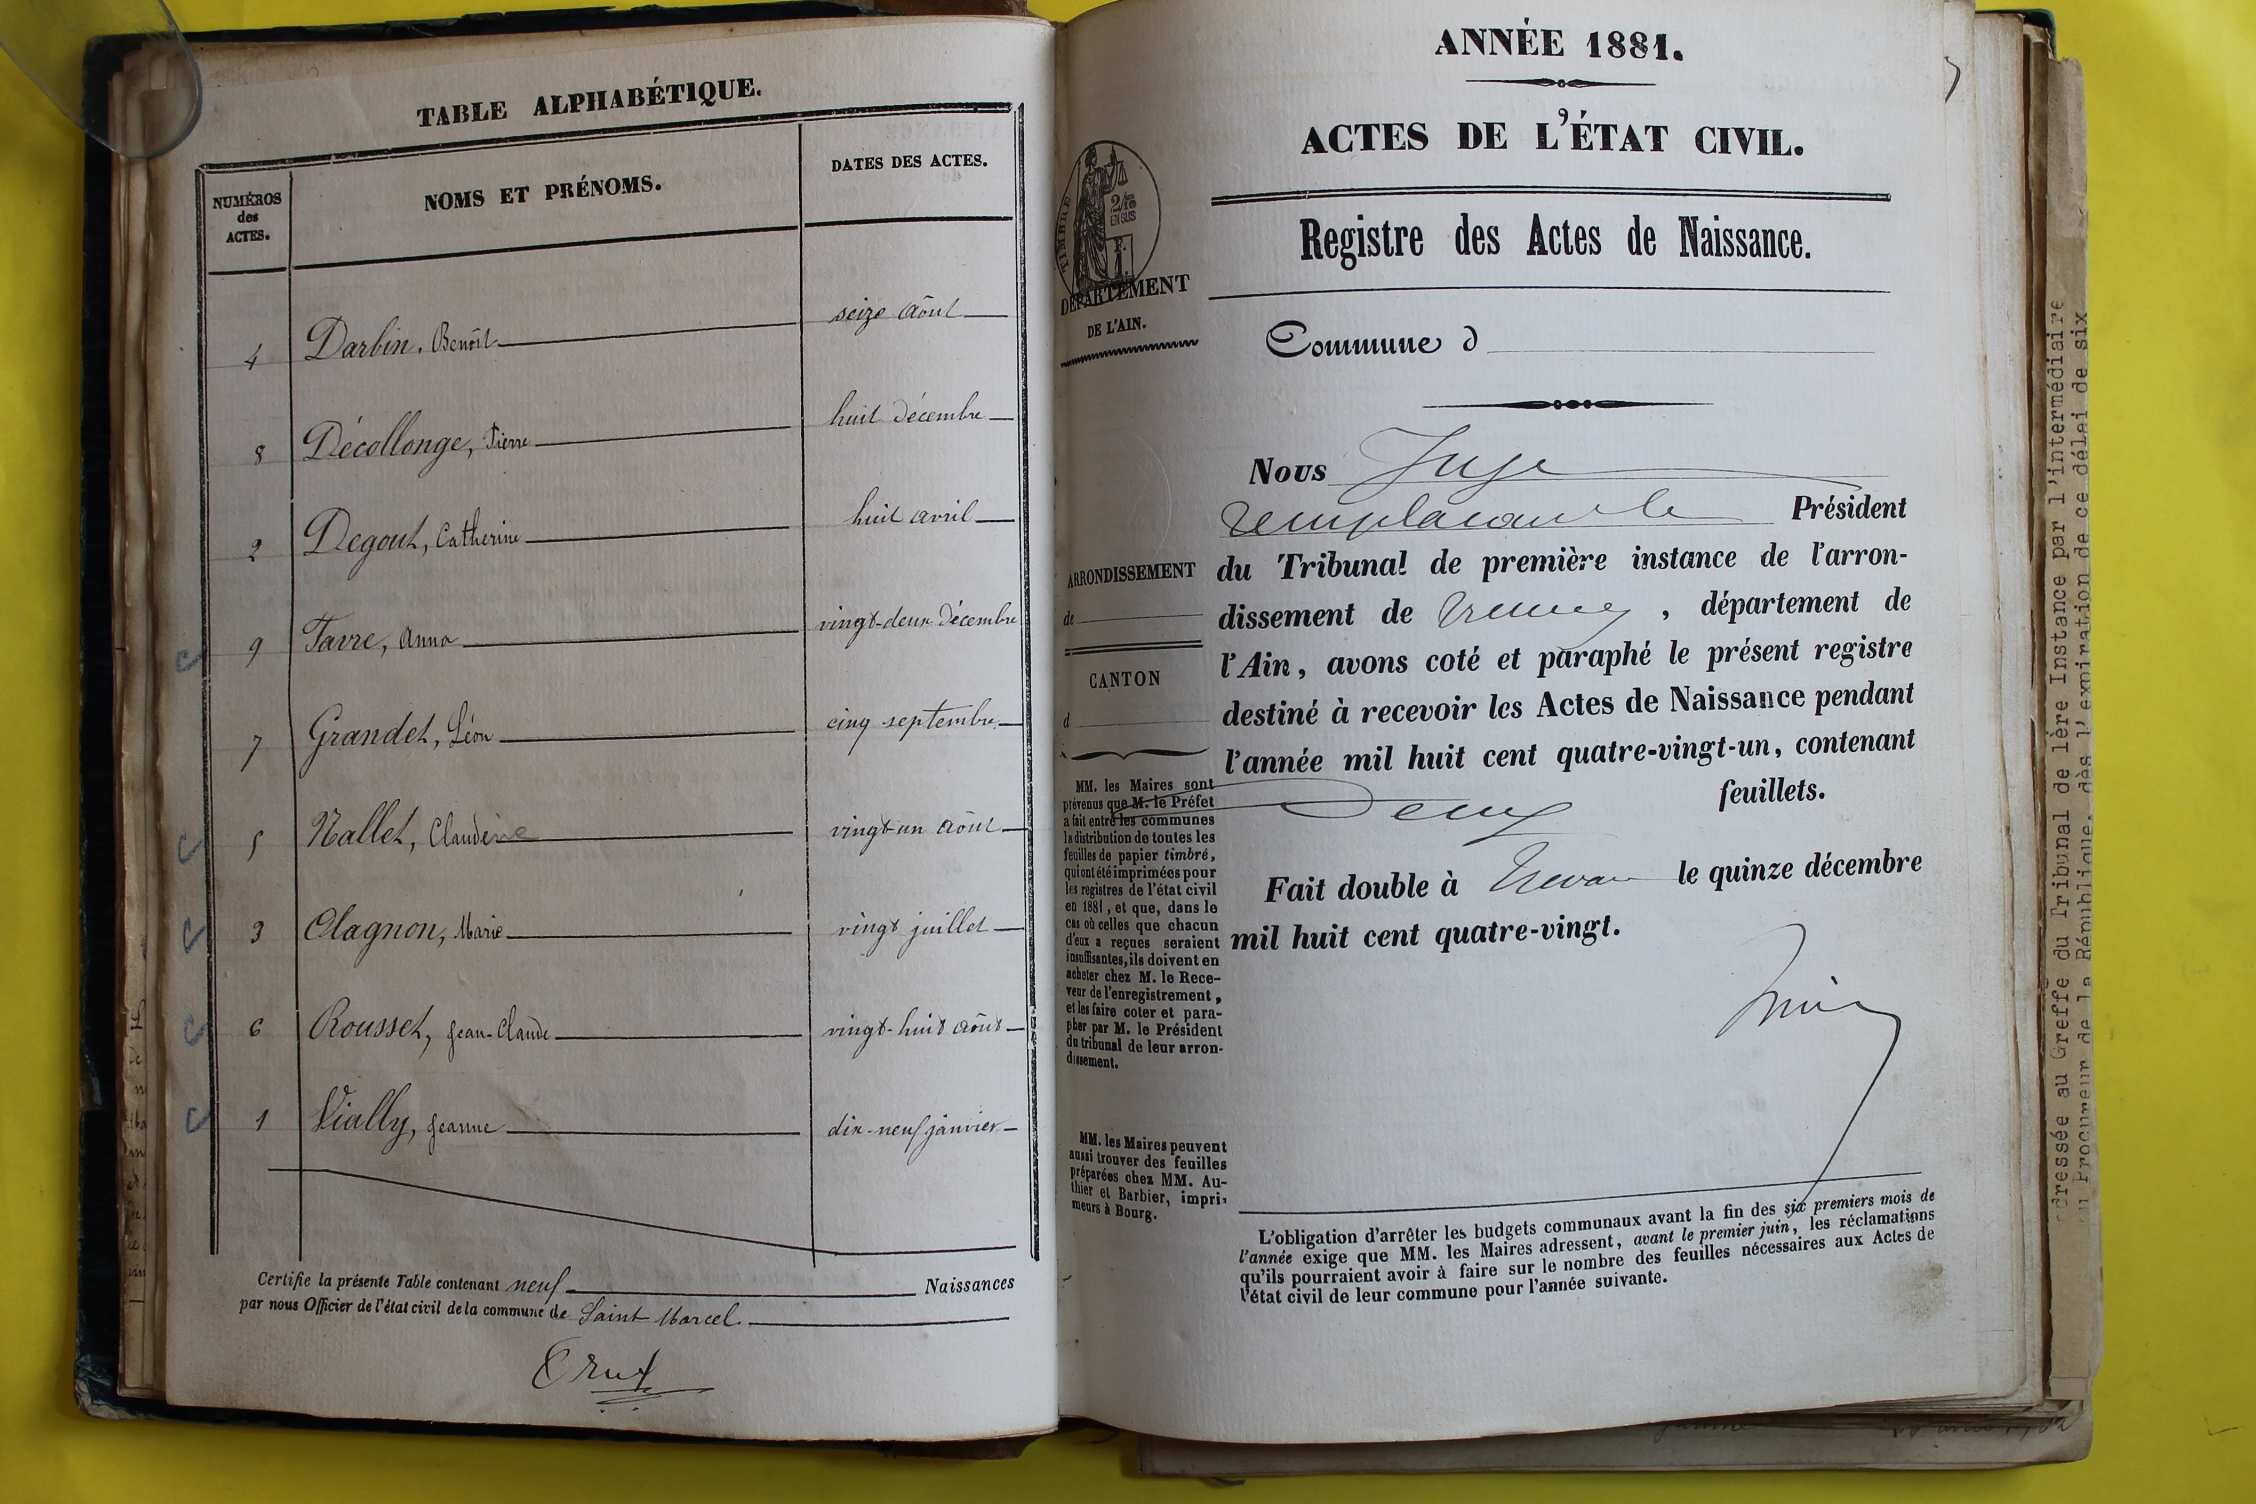 TABLE ALPHABÉTIQUE.
NUMÉROS
des
ACTES.
NOMS ET PRÉNOMS.
DATES DES ACTES.
4 Darbin, Benoît seize Août
8 Décollonge, Pierre huit Décembre
2 Degout, Catherine huit avril
9 Favre, Anna vingt-deux Décembre
7 Grandet, Léon cinq septembre
5 Nallet, Claudine vingt-un Août
3 Olagnon, Marie vingt juillet
6 Rousset, Jean-Claude vingt-huit Août
1 Vially, Jeanne dix-neuf janvier
Certifie la présente Table contenant neuf Naissances
par nous Officier de l'état civil de la commune de Saint Marcel
ANNÉE 1881.
ACTES DE L'ÉTAT CIVIL.
Registre des Actes de Naissance.
TIMBRE
2/10
EN SUS
DÉPARTEMENT
DE L'AIN.
Commune d
Nous Juge
remplaçant le Président
du Tribunal de première instance de l'arron-
dissement de Trévoux, département de
l'Ain, avons coté et paraphé le présent registre
destiné à recevoir les Actes de Naissance pendant
l'année mil huit cent quatre-vingt-un, contenant
Deux feuillets.
Fait double à Trévoux le quinze décembre
mil huit cent quatre-vingt.
ARRONDISSEMENT
de
CANTON
d
MM. les Maires sont
prévenus que M. le Préfet
a fait entre les communes
la distribution de toutes les
feuilles de papier timbré,
qui ont été imprimées pour
les registres de l'état civil
en 1881, et que, dans le
cas où celles que chacun
d'eux a reçues seraient
insuffisantes, ils doivent en
acheter chez M. le Rece-
veur de l'enregistrement,
et les faire coter et para-
pher par M. le Président
du tribunal de leur arron-
dissement.
MM. les Maires peuvent
aussi trouver des feuilles
préparées chez MM. Au-
thier et Barbier, impri-
meurs à Bourg.
L'obligation d'arrêter les budgets communaux avant la fin des six premiers mois de
l'année exige que MM. les Maires adressent, avant le premier juin, les réclamations
qu'ils pourraient avoir à faire sur le nombre des feuilles nécessaires aux Actes de
l'état civil de leur commune pour l'année suivante.
adressée au Greffe du Tribunal de 1ère Instance par l'intermédiaire
du Procureur de la République, dès l'expiration de ce délai de six